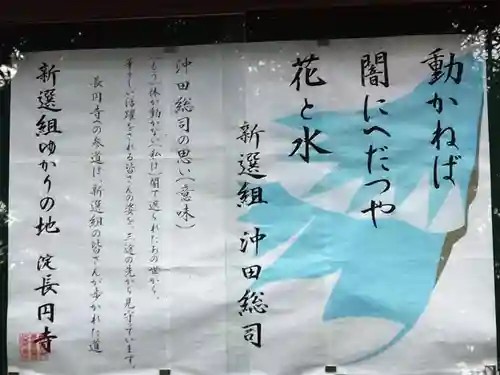 動かねば
闇にへだつや
花と水
新選組 沖田総司
沖田総司の思い(意味)
(もう)体が動かない(私は)闇で遮られたあの世から、
華々しい活躍をされる皆さんの姿を、三途の先から見守ています。
長円寺の参道は、新選組の皆さんが歩かれた道
新選組ゆかりの地 淀 長円寺